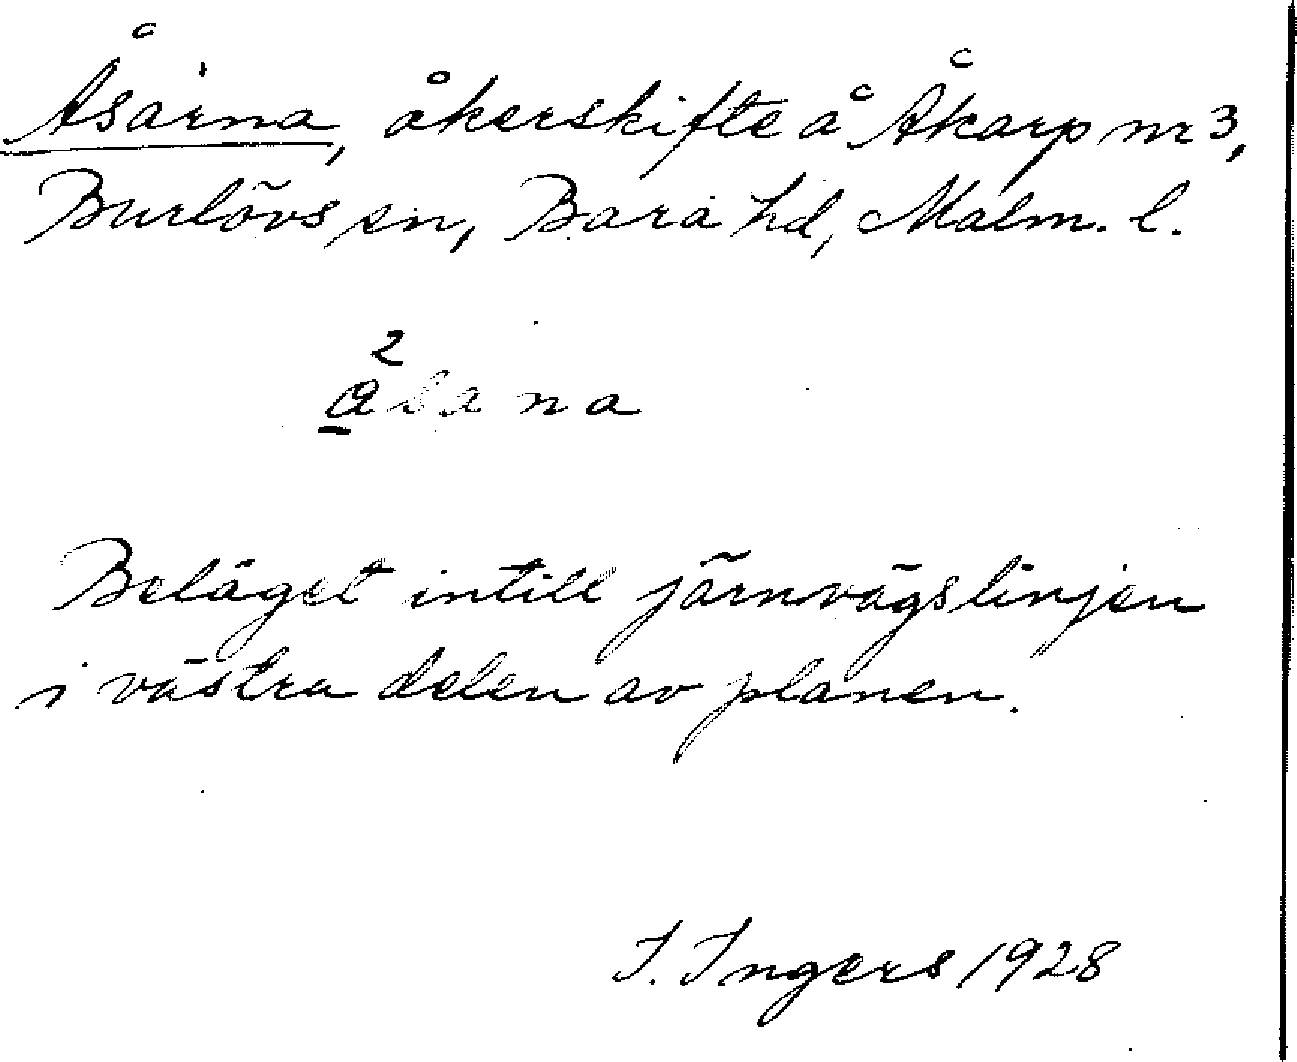 Åsarna, åkerskifte å Åkarp nr 3,
Burlövs sn, Bara hd, Malm. l.
Beläget intill järnvägslinjen
i västra delen av planen.
I. Ingers 1928